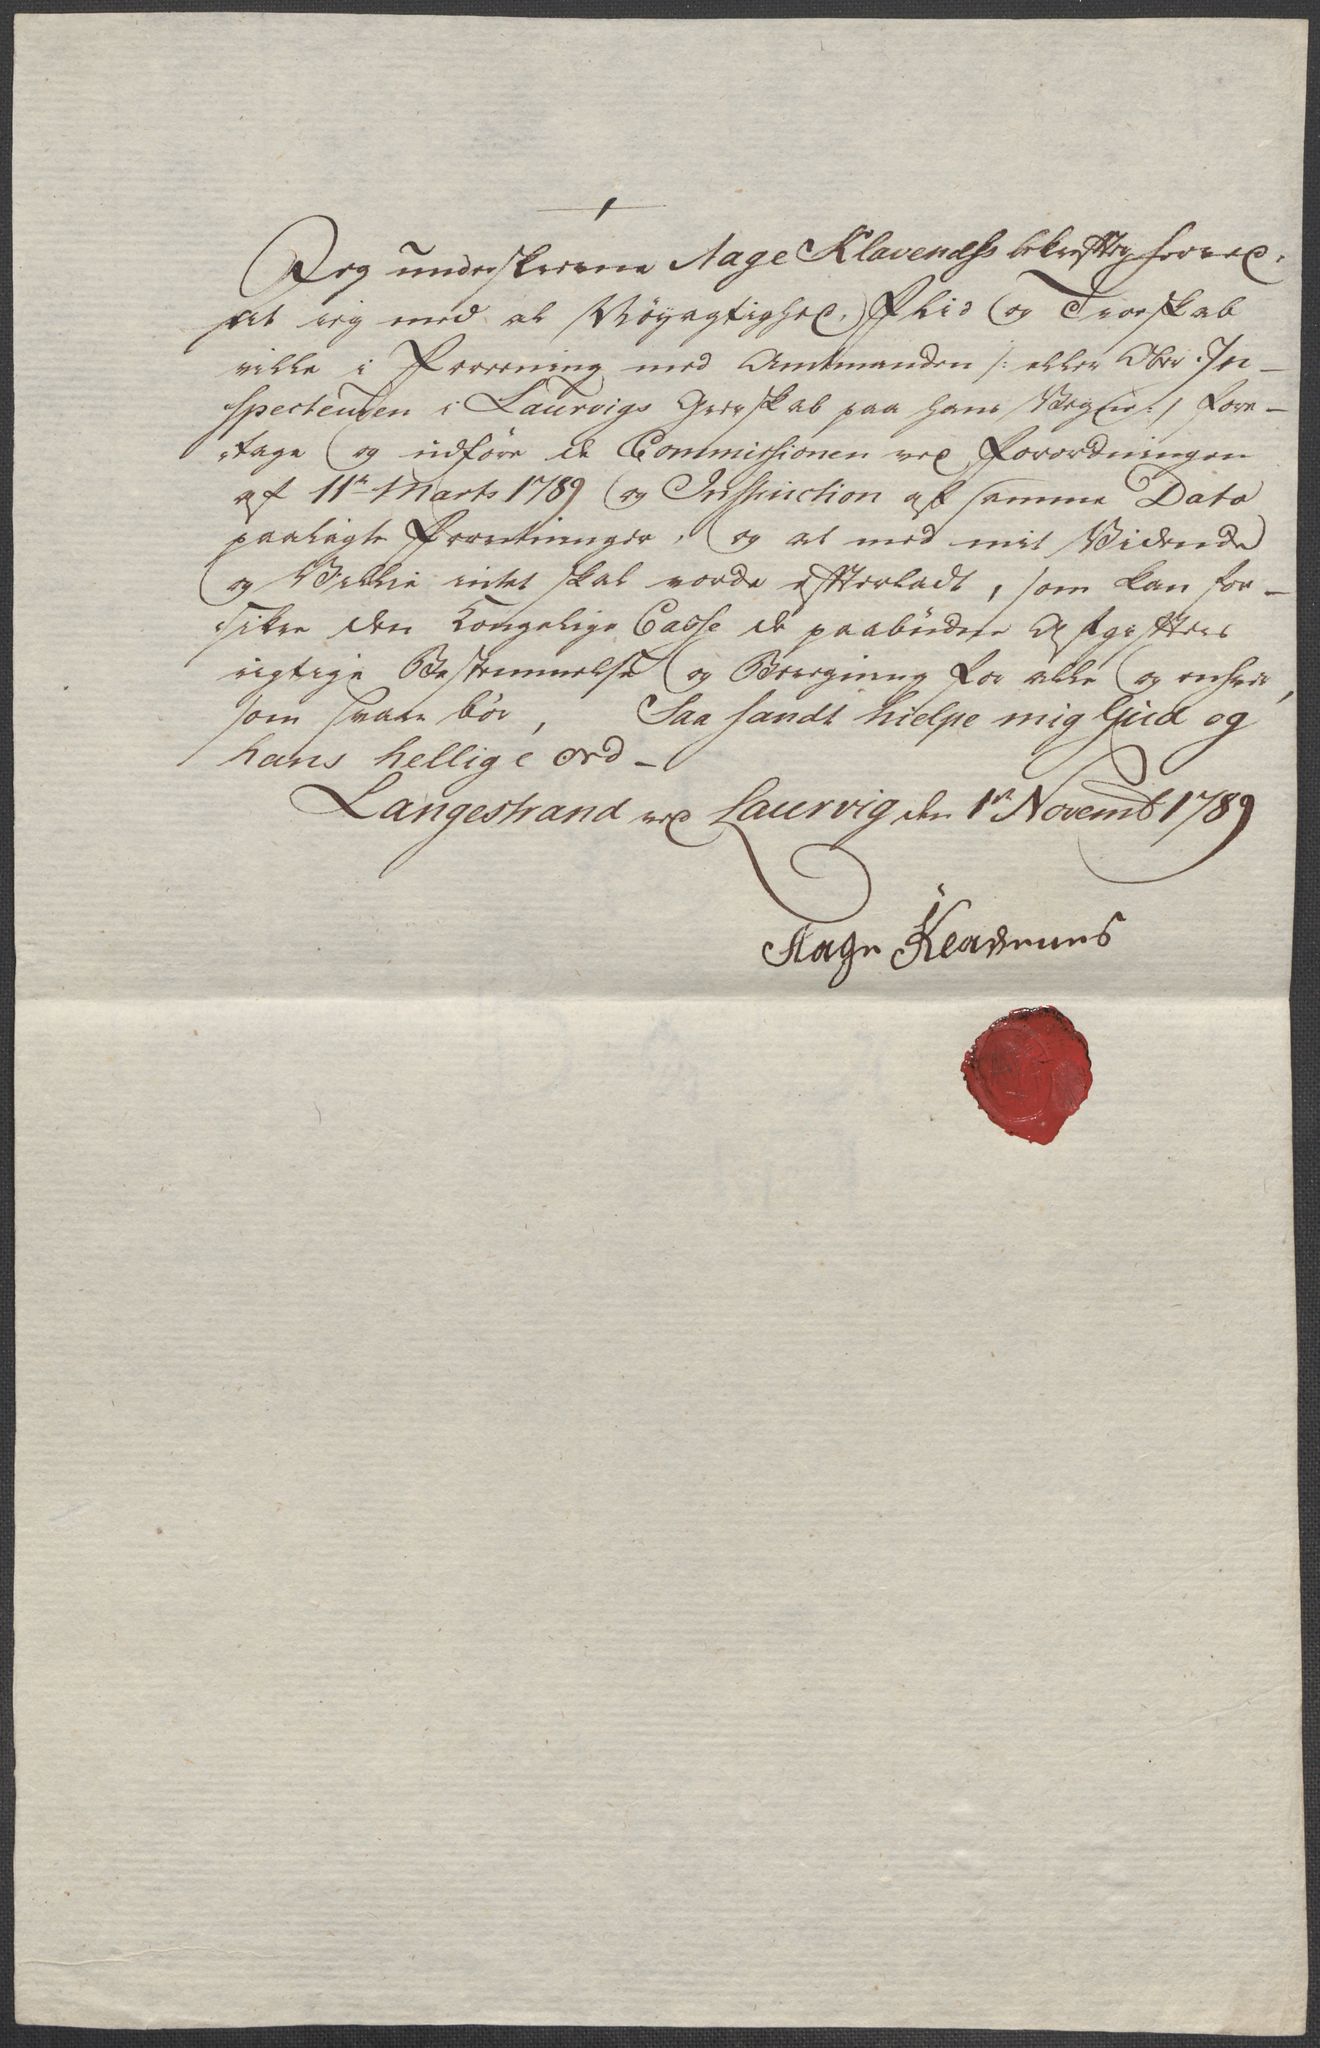 Jeg underskrevne Aage Klavenæss bekræfter herved,
at jeg med al Nöyagtighed, Fliid og Troeskab
ville i Foreening med Amtmanden /: eller Ober-In-
specteuren i Laurvigs Grevskab paa hans Vegne :/ fore-
tage og udföre de Commissionen ved Forordningen
af 11te Marts 1789 og Instruction af samme Dato
paalagte Forretninger, og at med mit Vidende
og Villie intet skal vorde efterladt, som kan for-
sikre den Kongelige Casse de paabudne Afgifters
rigtige Bestemmelse og Beregning for alle og enhver,
som svare bör, Saa sandt hielpe mig Gud og
hans hellige Ord -
Langestrand ved Laurvig den 1te Novemb 1789
Aage Klavenes